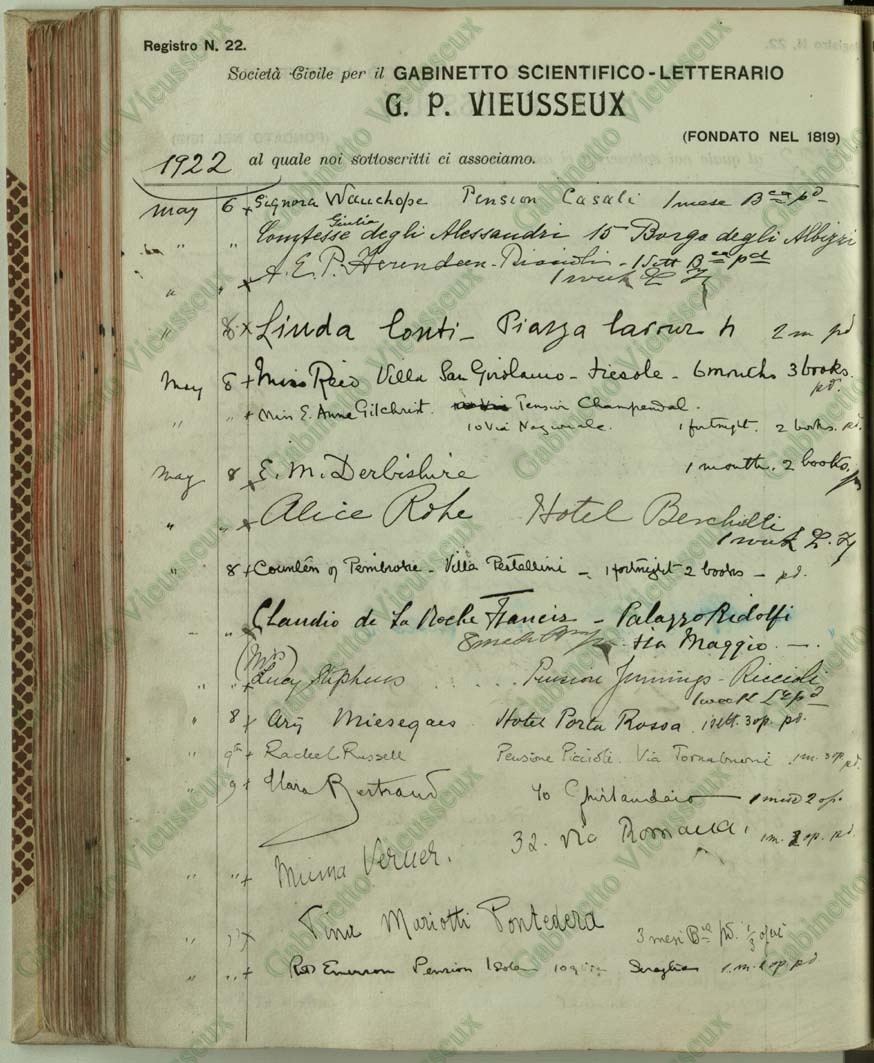 Registro N. 22.
Società Civile per il GABINETTO SCIENTIFICO-LETTERARIO
G. P. VIEUSSEUX
(FONDATO NEL 1819)
1922 al quale noi sottoscritti ci associamo.
May 6 x Signora Wauchope Pension Casali 1 mese pd
Giulia
" " Comtesse degli Alessandri 15 Borgo degli Albizzi
A. E. P. 1 sett pd
" " x 1 week
" 8 x Linda Conti - Piazza Cavour 2 m pd
May 8 + Miss Reid Villa San Girolamo - Fiesole - 6 months 3 books.
pd.
" " + Miss E. Anne Gilchrist. Pension Champendal.
10 Via Nazionale. 1 fortnight. 2 books. pd.
May 8 x E. M. Derbishire 1 month. 2 books,
" " x Alice Rohe Hotel Berchielli
1 week
" 8 + Countess of Pembroke - Villa - 1 fortnight 2 books - pd.
" x Claudio de La Roche Francis - Palazzo Ridolfi
Via Maggio. -
(Mrs)
" " + Lucy Stephens Pensione Jennings - Riccioli
1 week pd
" 8 + Miesegaes Hotel Porta Rossa. 1 sett. 3 op. pd.
9th + Rachel Russell Pensione Via Tornabuoni 1 m. 3 op. pd.
9 + Bertrand 10 Ghirlandaio 1 mese 2 op.
32. Via Romana. 1 m. 2 op. pd.
" " +
" " x Tina Mariotti Pontedera 3 mesi pd.
" " + Emerson Pension 1 m. op. pd